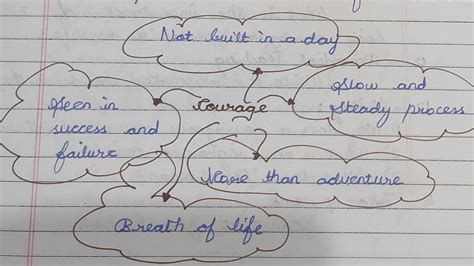 Not built in a day
Slow and
steady process
Courage
Seen in
success and
failure
More than adventure
Breath of life